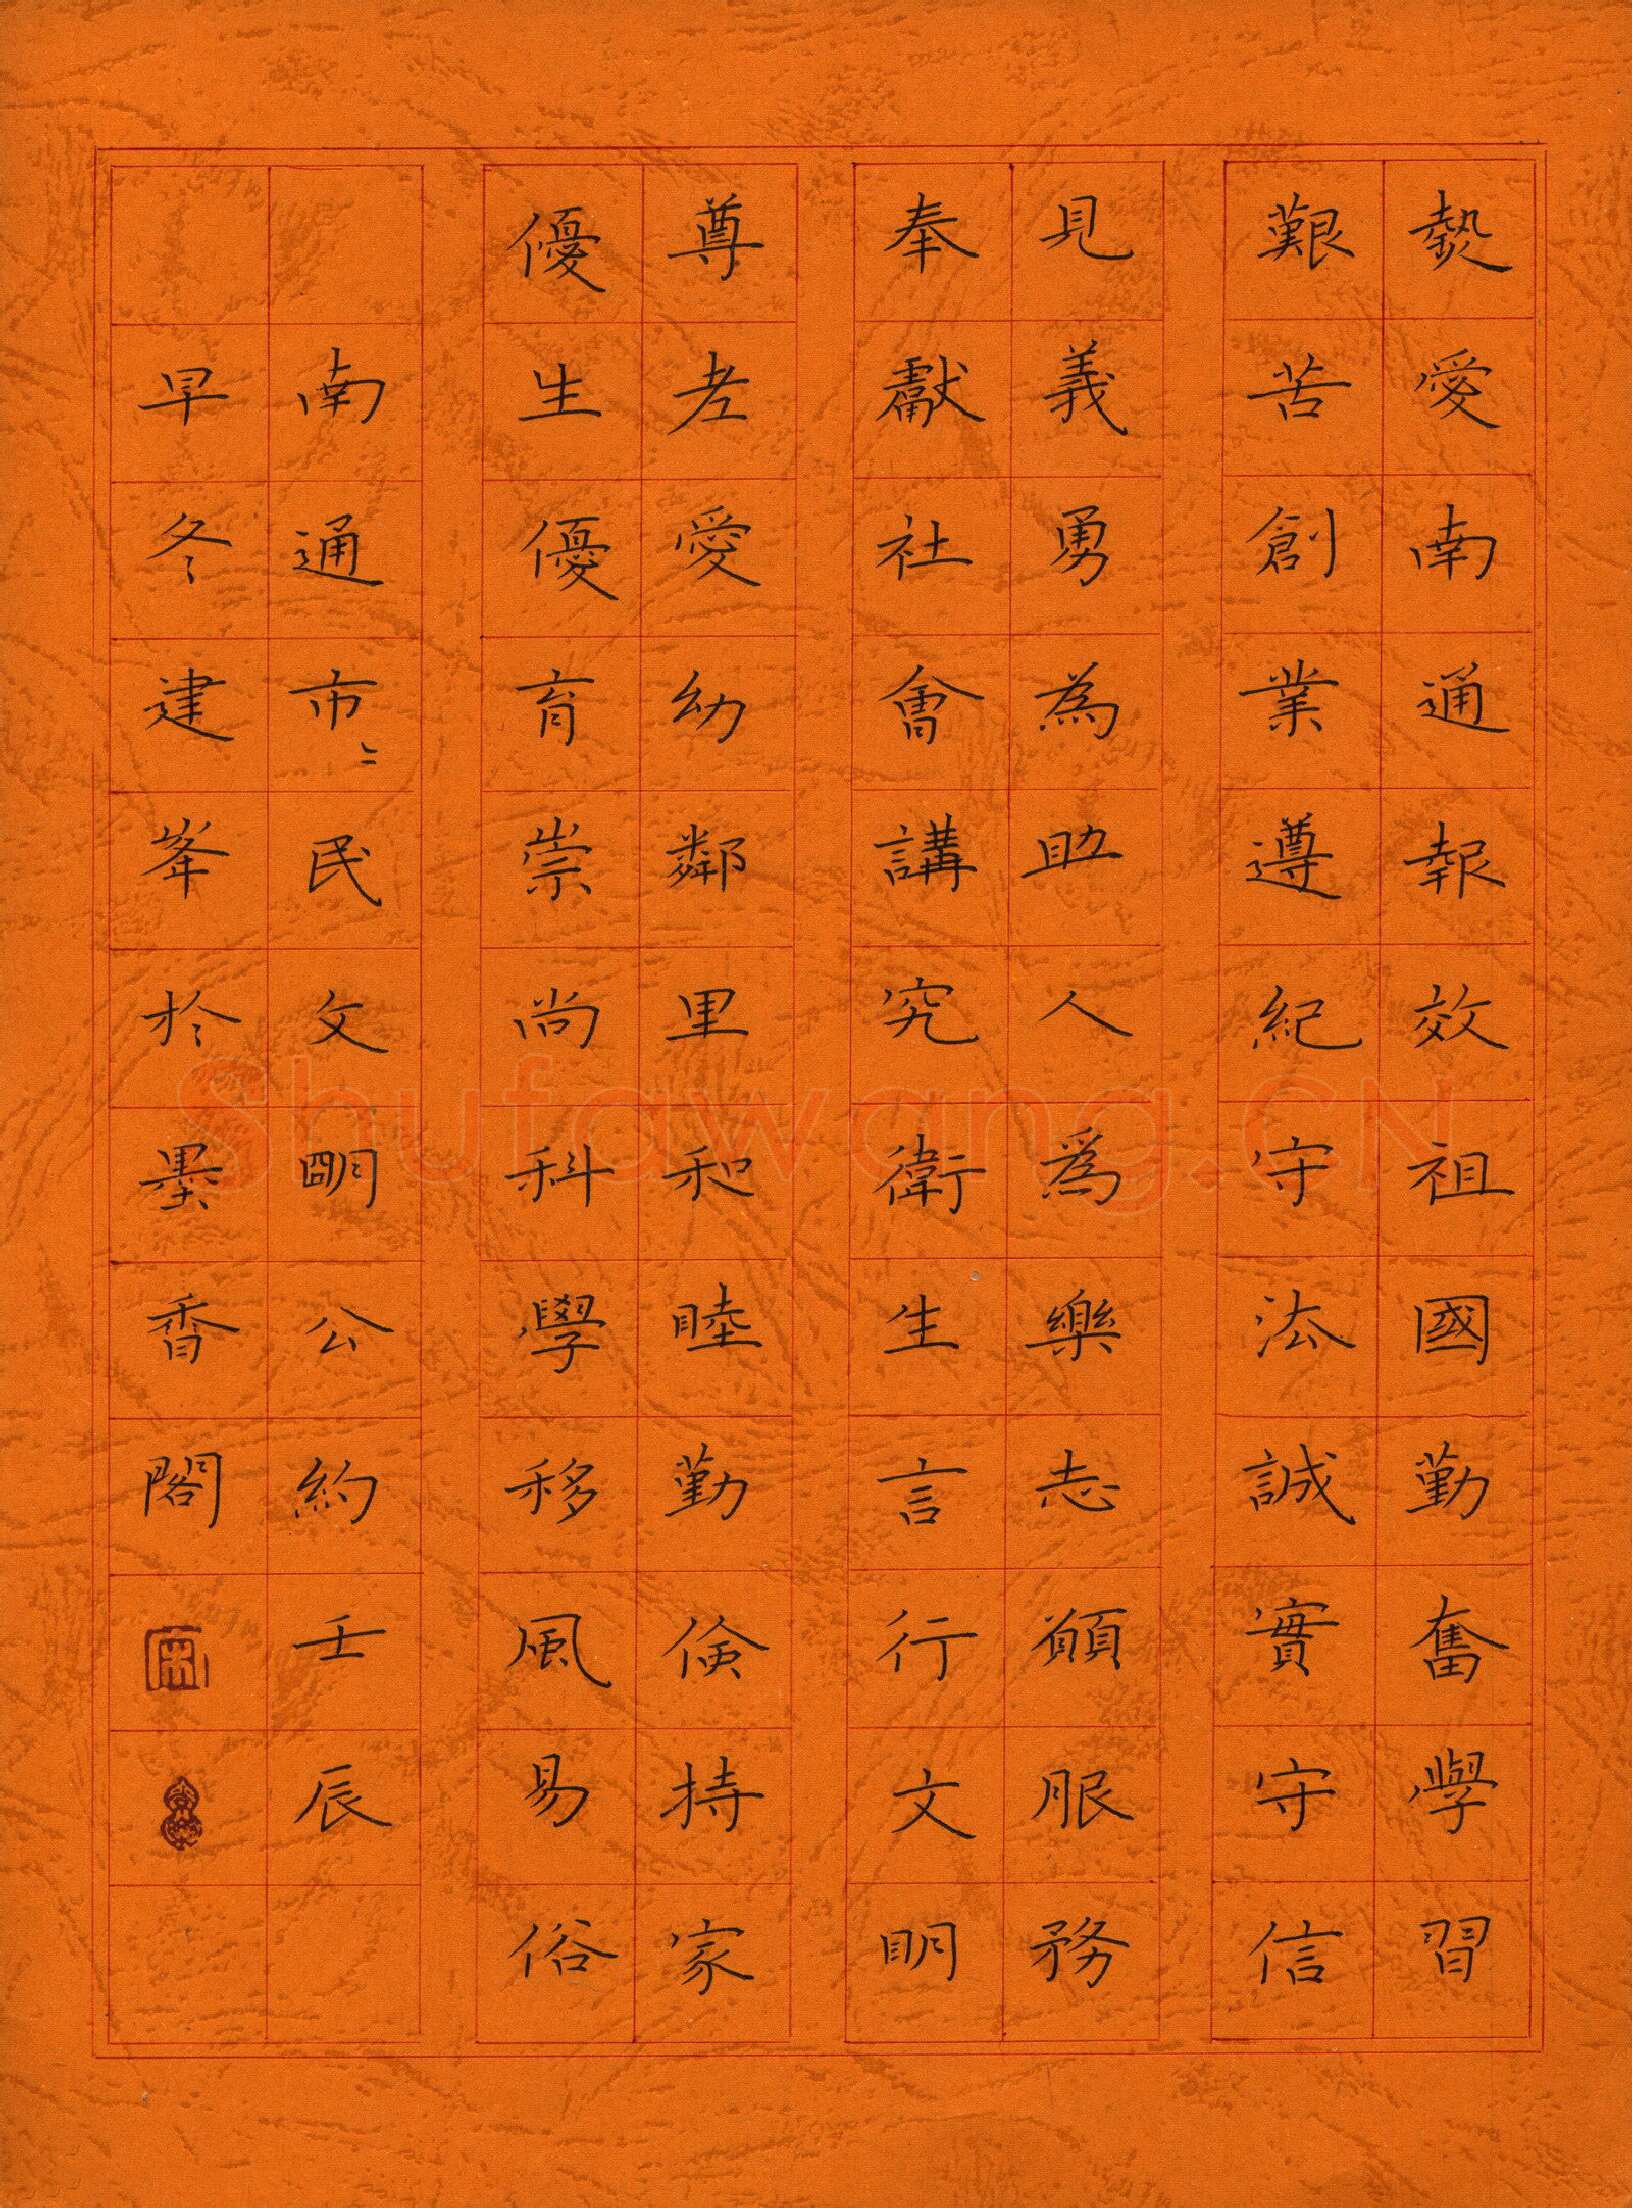 熱愛南通報效祖國勤奮學習
艱苦創業遵紀守法誠實守信
見義勇為助人為樂志願服務
奉獻社會講究衛生言行文明
尊老愛幼鄰里和睦勤儉持家
優生優育崇尚科學移風易俗
南通市〻民文明公約壬辰
早冬建峯於墨香閣
Shufawang.CN